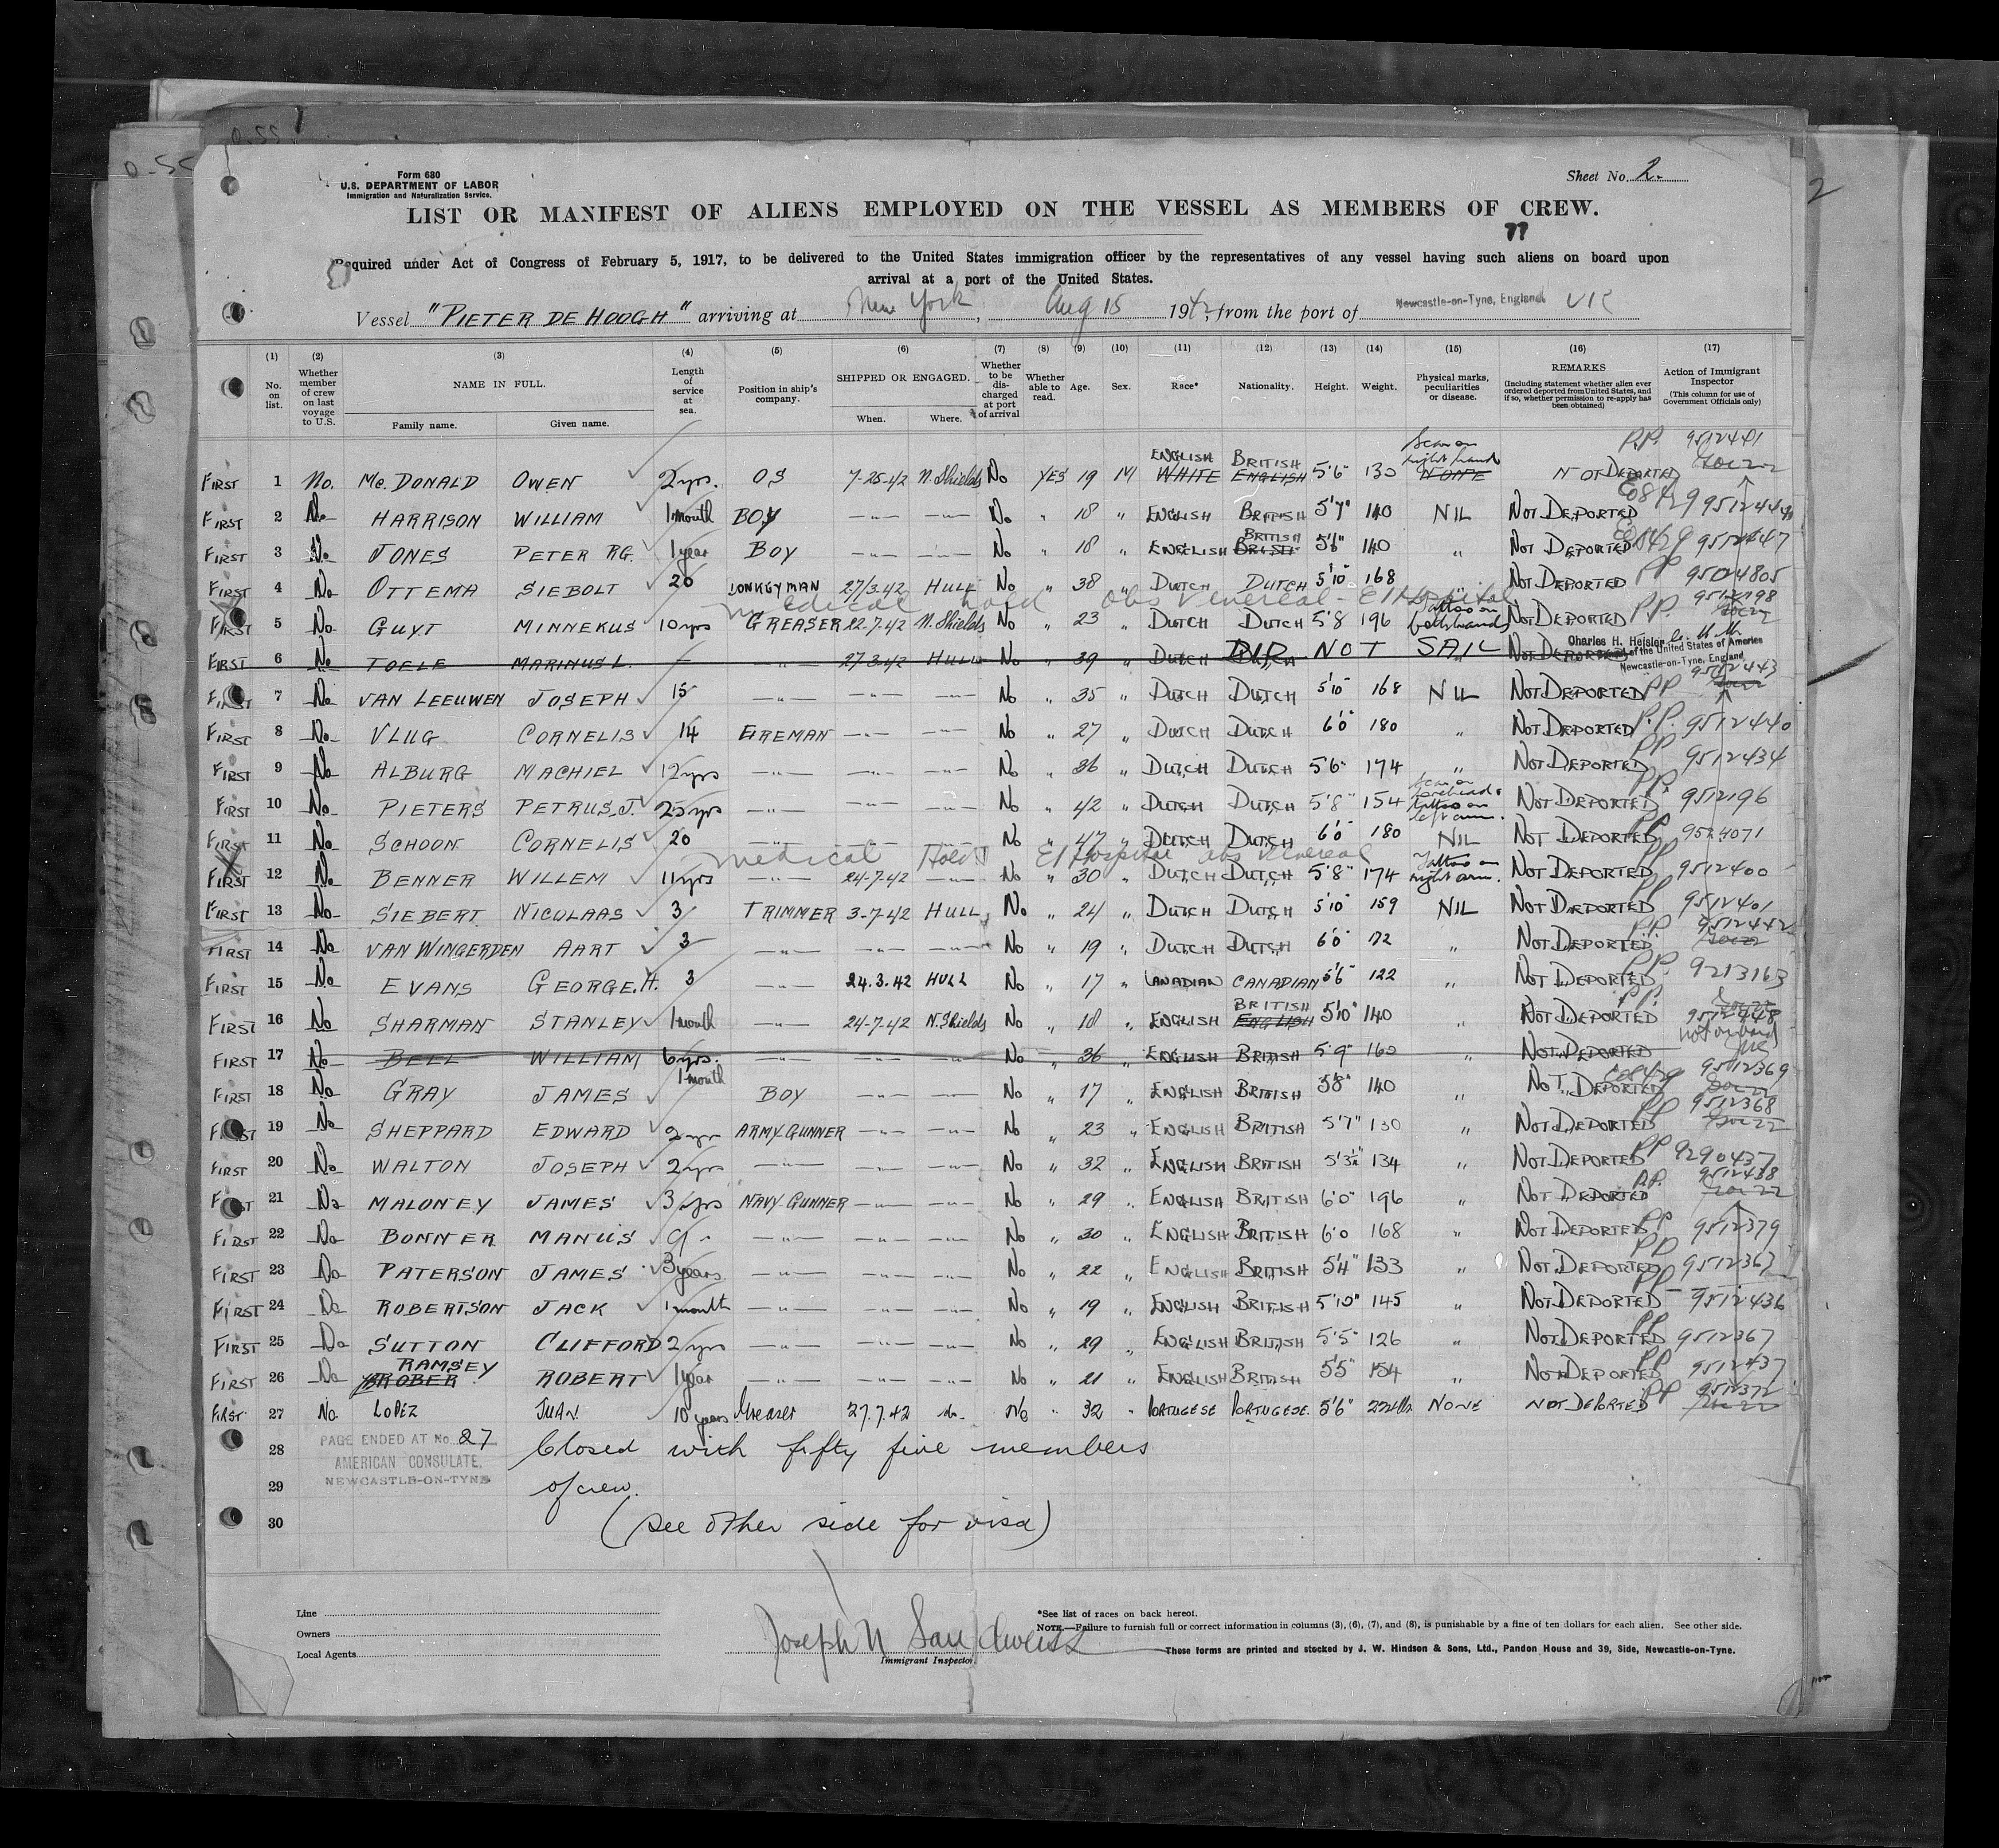 Form 680
U.S. DEPARTMENT OF LABOR
Immigration and Naturalization Service.
Sheet No. 2.
LIST OR MANIFEST OF ALIENS EMPLOYED ON THE VESSEL AS MEMBERS OF CREW.
Required under Act of Congress of February 5, 1917, to be delivered to the United States immigration officer by the representatives of any vessel having such aliens on board upon
arrival at a port of the United States.
Vessel "PIETER DE HOOGH" arriving at New York, Aug 15 1942, from the port of Newcastle-on-Tyne, England.
(1) (2) (3) (4) (5) (6) (7) (8) (9) (10) (11) (12) (13) (14) (15) (16) (17)
No. on list. Whether member of crew on last voyage to U.S. NAME IN FULL. Family name. Given name. Length of service at sea. Position in ship's company. SHIPPED OR ENGAGED. When. Where. Whether to be discharged at port of arrival Whether able to read. Age. Sex. Race* Nationality. Height. Weight. Physical marks, peculiarities or disease. REMARKS (Including statement whether alien ever ordered deported from United States, and if so, whether permission to re-apply has been obtained) Action of Immigrant Inspector (This column for use of Government Officials only)
FIRST 1 No. Mc. DONALD OWEN 2 yrs. OS 7-25-42 N. Shields No YES 19 M ENGLISH WHITE BRITISH ENGLISH 5'6" 130 Scar on right hand NONE NOT DEPORTED P.P. 9512441
FIRST 2 No HARRISON WILLIAM 1 month BOY —"— —"— No " 18 " ENGLISH BRITISH 5'7" 140 NIL NOT DEPORTED
FIRST 3 No JONES PETER RG. 1 year BOY —"— —"— No " 18 " ENGLISH BRITISH 140 " NOT DEPORTED
FIRST 4 No OTTEMA SIEBOLT 20 DONKEYMAN 27/3.42 HULL No " 38 " DUTCH DUTCH 5'10" 168 " NOT DEPORTED PP 9504805
medical hold obs Venereal - EI Hospital
FIRST 5 No GUYT MINNEKUS 10 yrs GREASER 22.7.42 N. Shields No " 23 " DUTCH DUTCH 5'8 196 tattoo on both hands NOT DEPORTED P.P.
FIRST 6 No TOELE MARINUS L. —"— 27.3.42 HULL No " 39 " DUTCH DUTCH DID NOT SAIL NOT DEPORTED
Charles H. Heisler
of the United States of America
Newcastle-on-Tyne, England
FIRST 7 No VAN LEEUWEN JOSEPH 15 —"— —"— —"— No " 35 " DUTCH DUTCH 5'10" 168 NIL NOT DEPORTED PP
FIRST 8 No VLUG CORNELIS 14 FIREMAN —"— —"— No " 27 " DUTCH DUTCH 6'0 180 " NOT DEPORTED P.P. 9512440
FIRST 9 No ALBURG MACHIEL 12 yrs —"— —"— —"— No " 36 " DUTCH DUTCH 5'6" 174 " NOT DEPORTED PP 9512434
FIRST 10 No PIETERS PETRUS. J. 25 yrs —"— —"— —"— No " 42 " DUTCH DUTCH 5'8" 154 Scar on forehead & tattoo on left arm. NOT DEPORTED PP. 9512196
FIRST 11 No SCHOON CORNELIS 20 —"— —"— —"— No " 47 " DUTCH DUTCH 6'0 180 NIL NOT DEPORTED PP
medical Hold EI Hospital obs Venereal
FIRST 12 No BENNER WILLEM 11 yrs —"— 24-7-42 —"— No " 30 " DUTCH DUTCH 5'8" 174 Tattoo on right arm. NOT DEPORTED PP 9512400
FIRST 13 No SIEBERT NICOLAAS 3 TRIMMER 3-7-42 HULL No " 24 " DUTCH DUTCH 5'10" 159 NIL NOT DEPORTED PP 9512401
FIRST 14 No VAN WINGERDEN AART 3 —"— —"— —"— No " 19 " DUTCH DUTCH 6'0" 172 " NOT DEPORTED PP
FIRST 15 No EVANS GEORGE. H. 3 —"— 24.3.42 HULL No " 17 " CANADIAN CANADIAN 5'6" 122 " NOT DEPORTED P.P. 9213163
FIRST 16 No SHARMAN STANLEY 1 month —"— 24-7-42 N. Shields No " 18 " ENGLISH BRITISH ENGLISH 5'10" 140 " NOT DEPORTED P.P. 9512448
FIRST 17 No BELL WILLIAM 6 yrs. —"— —"— —"— No " 36 " ENGLISH BRITISH 5'9" 160 " NOT DEPORTED not on board
FIRST 18 No GRAY JAMES 1 month BOY —"— —"— No " 17 " ENGLISH BRITISH 5'8" 140 " NOT DEPORTED 9512369
FIRST 19 No SHEPPARD EDWARD 2 yrs ARMY GUNNER —"— —"— No " 23 " ENGLISH BRITISH 5'7" 130 " NOT DEPORTED PP 9512368
FIRST 20 No WALTON JOSEPH 2 yrs —"— —"— —"— No " 32 " ENGLISH BRITISH 134 " NOT DEPORTED PP 9290437
FIRST 21 No MALONEY JAMES NAVY GUNNER —"— —"— No " 29 " ENGLISH BRITISH 6'0" 196 " NOT DEPORTED P.P. 9512438
FIRST 22 No BONNER MANUS 9 —"— —"— —"— No " 30 " ENGLISH BRITISH 6'0 168 " NOT DEPORTED PP 9512379
FIRST 23 No PATERSON JAMES 3 years —"— —"— —"— No " 22 " ENGLISH BRITISH 5'4" 133 " NOT DEPORTED PP 9512363
FIRST 24 No ROBERTSON JACK 1 month —"— —"— —"— No " 19 " ENGLISH BRITISH 5'10" 145 " NOT DEPORTED PP 9512436
FIRST 25 No SUTTON CLIFFORD 2 yrs —"— —"— —"— No " 29 " ENGLISH BRITISH 5'5" 126 " NOT DEPORTED PP 9512367
FIRST 26 No RAMSEY ROBERT 1 year —"— —"— —"— No " 21 " ENGLISH BRITISH 5'5" 154 " NOT DEPORTED PP 9512437
FIRST 27 No. LOPEZ JUAN 10 years Greaser 27.7.42 No " 32 " PORTUGESE PORTUGESE. 5'6" NONE NOT DEPORTED PP 9512372
28 PAGE ENDED AT No. 27 Closed with fifty five members
AMERICAN CONSULATE,
NEWCASTLE-ON-TYNE
29 of crew.
30 (See other side for visa)
Line
Owners
Local Agents
Immigrant Inspector.
*See list of races on back hereof.
NOTE.—Failure to furnish full or correct information in columns (3), (6), (7), and (8), is punishable by a fine of ten dollars for each alien. See other side.
These forms are printed and stocked by J. W. Hindson & Sons, Ltd., Pandon House and 39, Side, Newcastle-on-Tyne.